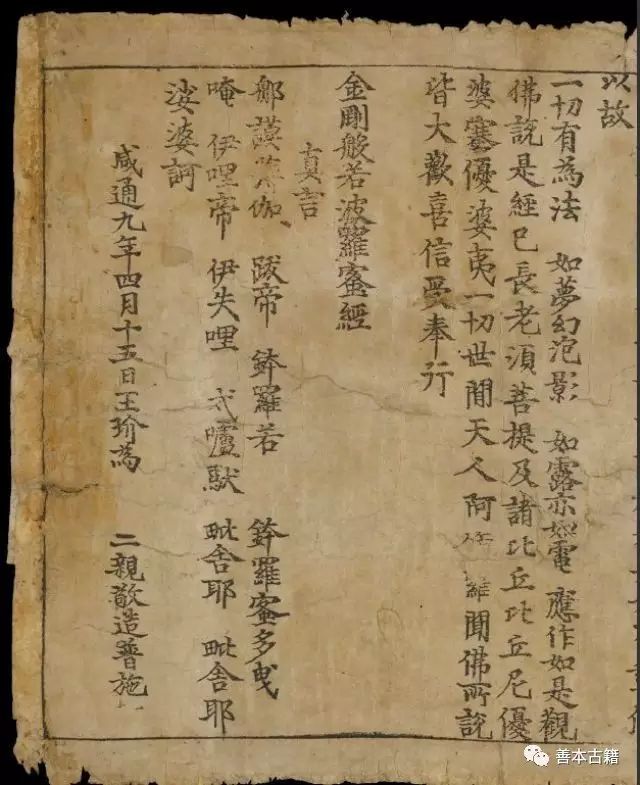 以故
一切有為法 如夢幻泡影 如露亦如電 應作如是觀
佛說是經已長老須菩提及諸比丘比丘尼優
婆塞優婆夷一切世間天人阿脩羅聞佛所說
皆大歡喜信受奉行
金剛般若波羅蜜經
真言
郍謨薄伽 跋帝 鉢羅若 鉢羅蜜多曳
唵 伊哩帝 伊失哩 戍嚧馱 毗舍耶 毗舍耶
娑婆訶
咸通九年四月十五日王玠為 二親敬造普施
善本古籍